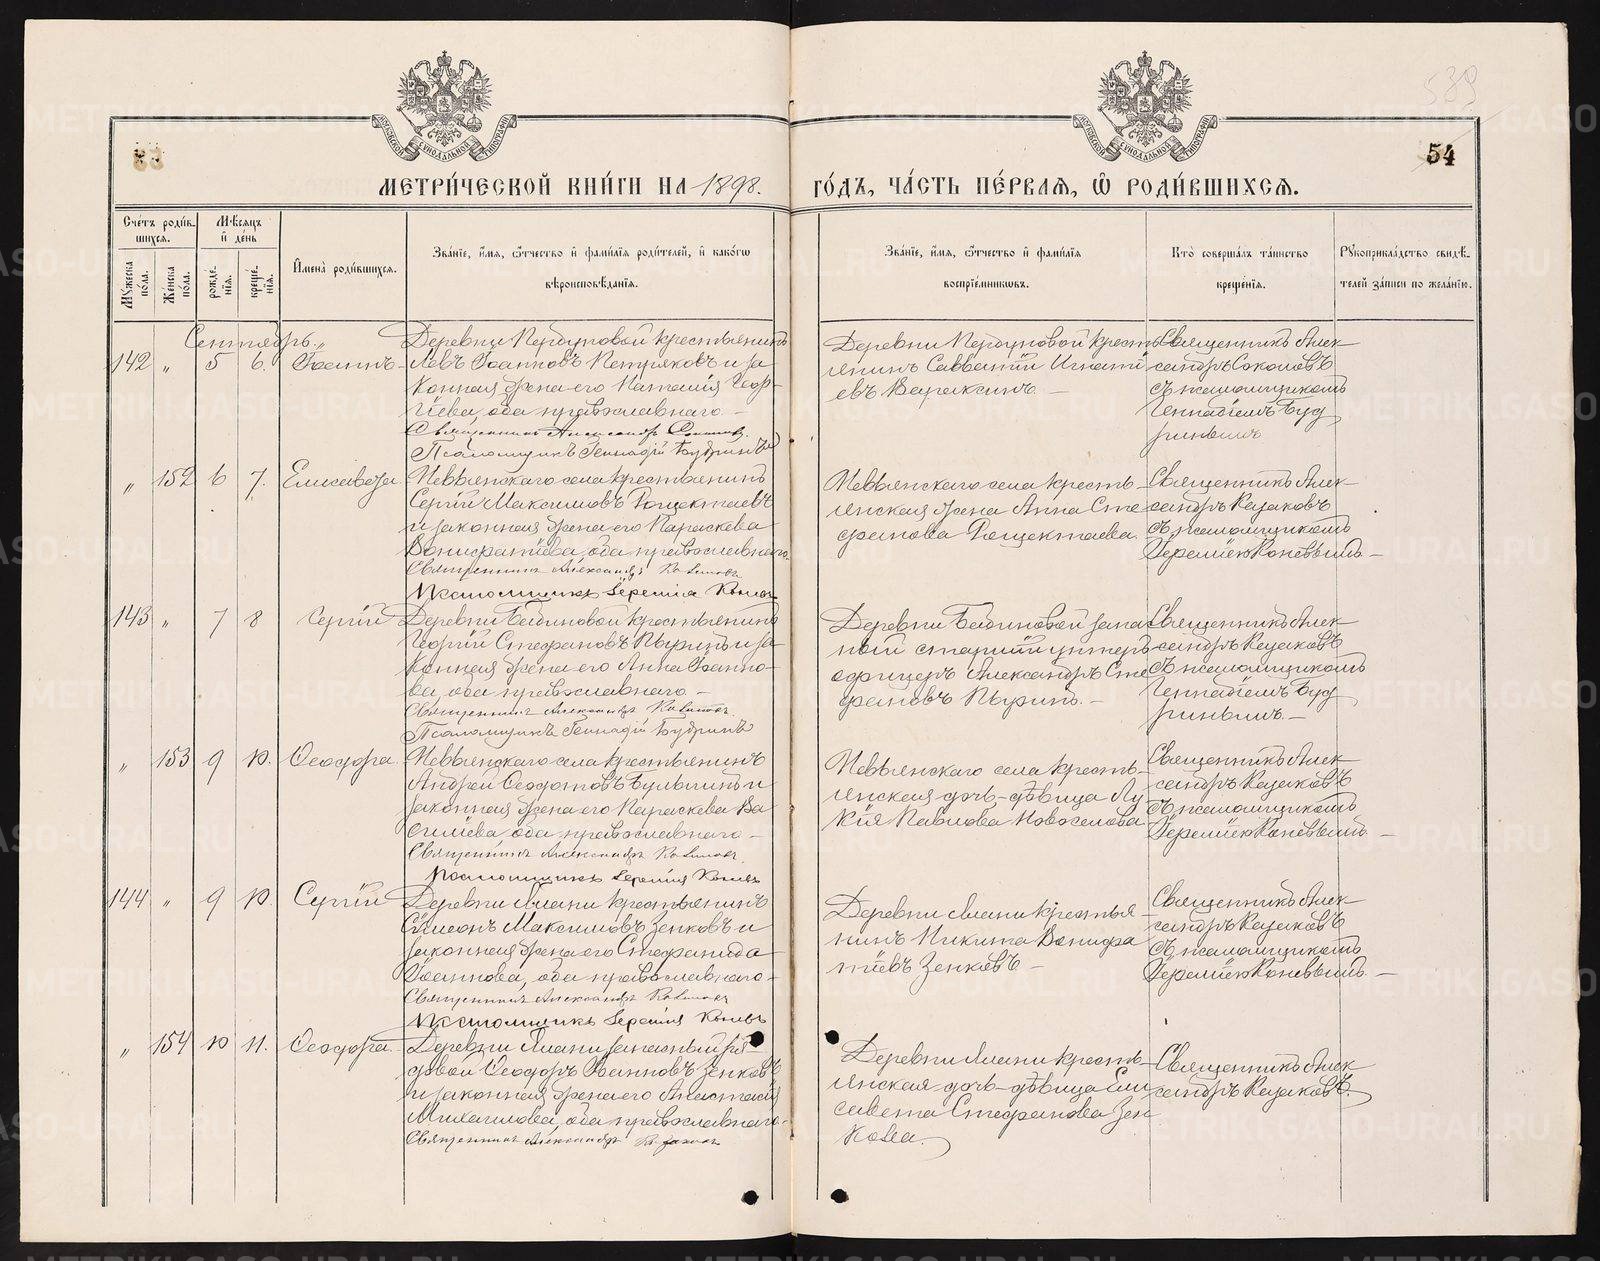 МЕТРИ́ЧЕСКОЙ КНИ́ГИ НА 1898.
ГО́ДЪ, ЧА́СТЬ ПЕ́РВАЯ, Ѡ РОДИ́ВШИХСЯ.
54
Сче́тъ роди́в-
шихся.
Мѣ́сяцъ
и де́нь
Мужеска по́ла.
Же́нска по́ла.
рожде́нія.
креще́нія.
И́мена роди́вшихся.
Зва́ніе, и́мя, о́тчество и фами́лія роди́телей, и како́гѡ
вѣроисповѣ́данія.
Зва́ніе, и́мя, о́тчество и фами́лія
воспріе́мниковъ.
Кто̀ соверша́лъ та́инство
креще́нія.
Рукоприкла́дство свидѣ́-
телей за́писи по жела́нію.
Сентябрь.
142 " 5 6. Іоаннъ
Деревни крестьянинъ
Левъ Іоанновъ Петряковъ и за
конная жена его Наталія Геор-
гіева, оба православнаго
Священникъ Александръ
Псаломщикъ Геннадій Будринъ
Деревни крестъ
янинъ Савватій Игнаті
евъ Варяксинъ.
Священникъ Алек-
сандръ Соколовъ
съ псаломщикомъ
Геннадіемъ Буд
ринымъ
" 152 6 7. Елисавета
Невьянскаго села крестьянинъ
Сергій Максимовъ Рощектаевъ
и законная жена его Параскева
Вонифатіева, оба православнаго
Священникъ Александръ Казаковъ
Псаломщикъ Іеремія Коневъ
Невьянскаго села кресть-
янская жена Анна Сте
фанова Рощектаева.
Священникъ Алек-
сандръ Казаковъ
съ псаломщикомъ
Іереміею Коневымъ
143 " 7 8 Сергій
Деревни Бабиновой крестьянинъ
Георгій Стефановъ Пыринъ и за
конная жена его Анна Іоанно-
ва, оба православнаго
Священникъ Александръ Казаковъ
Псаломщикъ Геннадій Будринъ
Деревни Бабиновой запас
ный старшій унтеръ-
офицеръ Александръ Сте
фановъ Пыринъ.
Священникъ Алек-
сандръ Казаковъ
съ псаломщикомъ
Геннадіемъ Буд
ринымъ.
" 153 9 10. Ѳеодора
Невьянскаго села крестьянинъ
Андрей Ѳеодотовъ и
законная жена его Параскева Ва
силіева, оба православнаго
Священникъ Александръ Казаковъ
Псаломщикъ Іеремія Коневъ
Невьянскаго села кресть-
янская дочь-дѣвица Лу
кія Павлова Новоселова
Священникъ Алек-
сандръ Казаковъ
съ псаломщикомъ
Іереміею Коневымъ
144 " 9 10. Сергій
Деревни Ялани крестьянинъ
Сѵмеонъ Максимовъ Зенковъ и
законная жена его Стефанида
Іоаннова, оба православнаго
Священникъ Александръ Казаковъ
Псаломщикъ Іеремія Коневъ
Деревни Ялани крестья-
нинъ Никита Вонифа
тіевъ Зенковъ
Священникъ Алек-
сандръ Казаковъ
съ псаломщикомъ
Іереміею Коневымъ
" 154 10 11. Ѳеодора
Деревни Ялани запасный ря-
довой Ѳеодоръ Іоанновъ Зенковъ
и законная жена его Анастасія
Михаилова, оба православнаго
Священникъ Александръ Казаковъ
Деревни Ялани кресть-
янская дочь-дѣвица Ели
савета Стефанова Зен
кова.
Священникъ Алек-
сандръ Казаковъ.